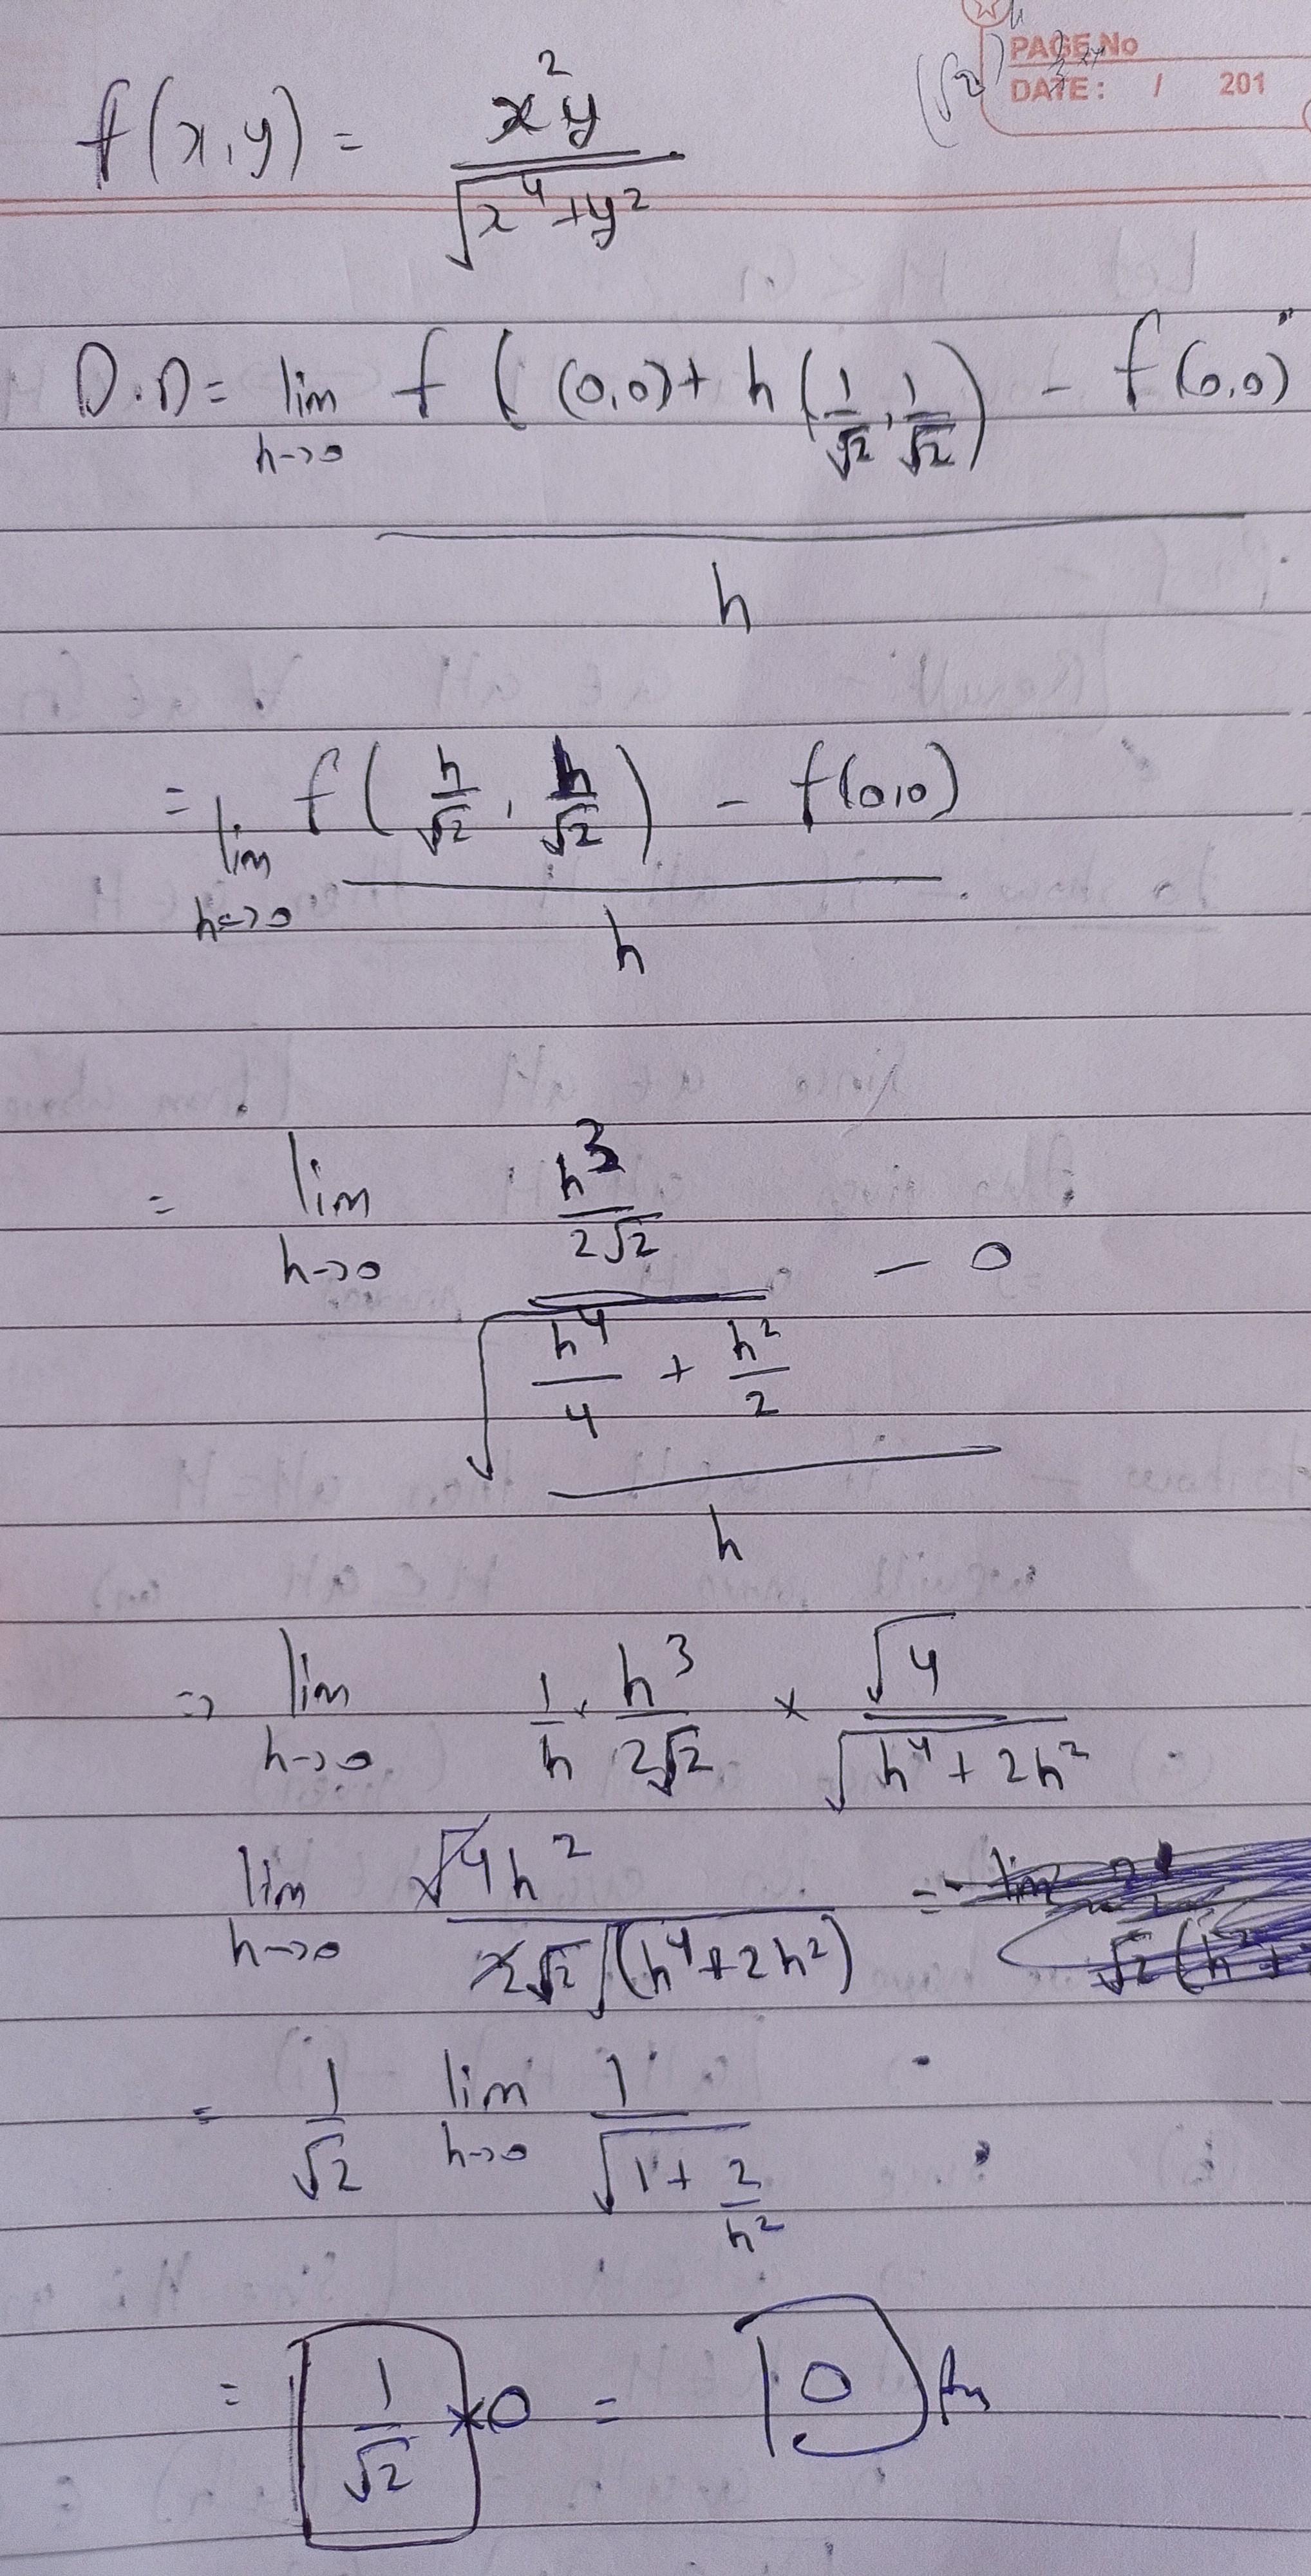 PAGE No
DATE: / 201
f(x,y) = x²y / √(x⁴+y²)
D.D = lim h→0 [f((0,0) + h(1/√2, 1/√2) - f(0,0)] / h
= lim h→0 [f(h/√2, h/√2) - f(0,0)] / h
= lim h→0 [(h³/2√2) / √(h⁴/4 + h²/2) - 0] / h
=> lim h→0 1/h × h³/2√2 × √4/√(h⁴+2h²)
lim h→0 √4h² / 2√2 √(h⁴+2h²) =
= 1/√2 lim h→0 1/√(1+2/h²)
= 1/√2 × 0 = 0 Ans